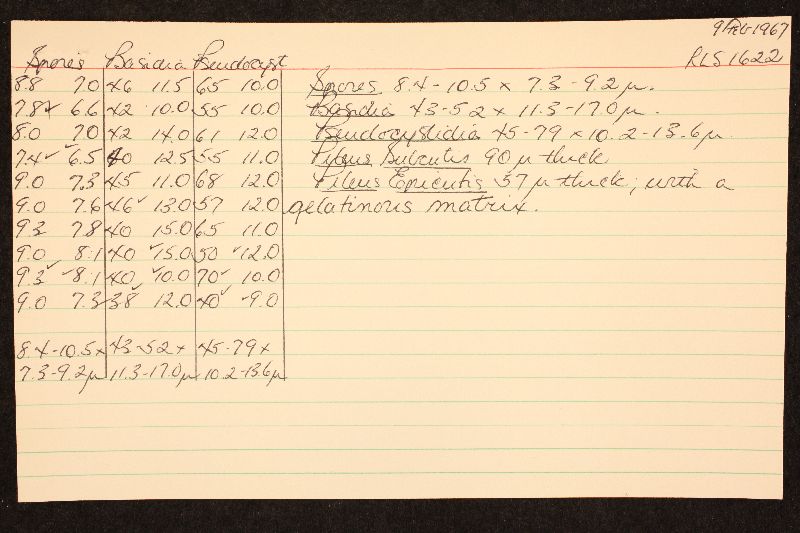 9 Feb 1967
RLS 1622
Spores Basidia Pseudocyst
8.8 7.0 46 11.5 65 10.0
7.8 6.6 42 10.0 55 10.0
8.0 7.0 42 14.0 61 12.0
7.4 6.5 40 12.5 55 11.0
9.0 7.3 45 11.0 68 12.0
9.0 7.6 46 13.0 57 12.0
9.3 7.8 40 15.0 65 11.0
9.0 8.1 40 15.0 50 12.0
9.3 8.1 40 10.0 70 10.0
9.0 7.3 38 12.0 40 9.0
8.4-10.5 x 43-52 x 45-79 x
7.3-9.2µ 11.3-17.0µ 10.2-13.6µ
Spores 8.4-10.5 x 7.3-9.2µ.
Basidia 43-52 x 11.3-17.0µ.
Pseudocystidia 45-79 x 10.2-13.6µ.
Pileus Subcutis 90µ thick
Pileus Epicutis 57µ thick; with a
gelatinous matrix.